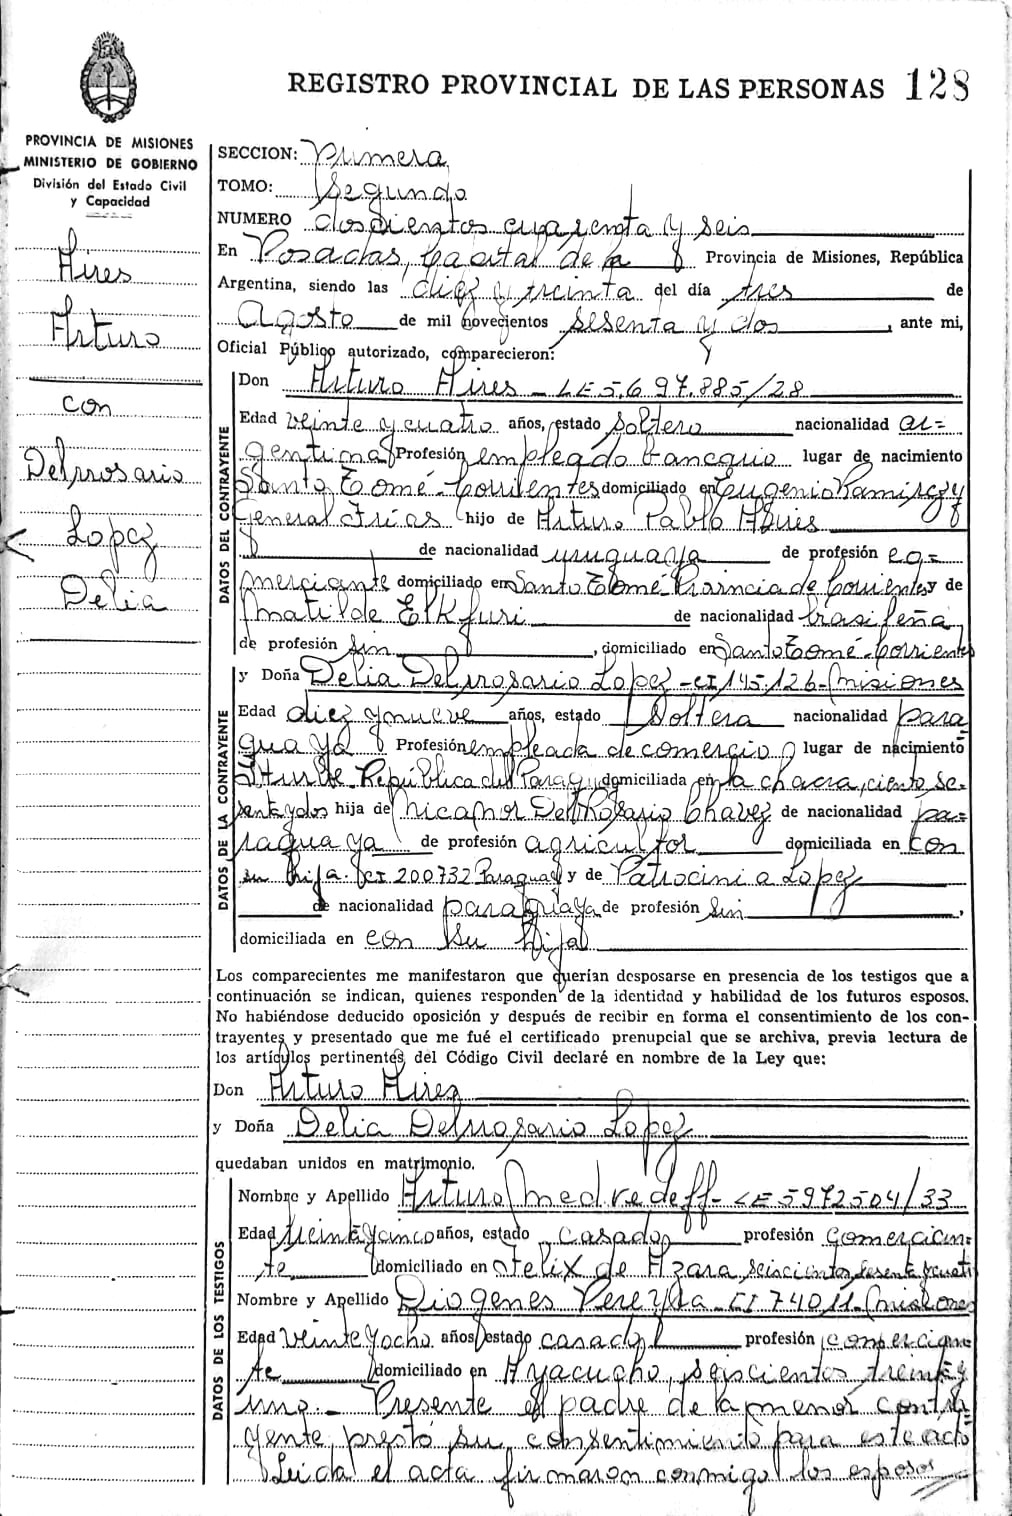 REGISTRO PROVINCIAL DE LAS PERSONAS 128
PROVINCIA DE MISIONES
MINISTERIO DE GOBIERNO
División del Estado Civil
y Capacidad
Aires
Arturo
con
Delrrosario
Lopez
Delia
SECCION: Primera
TOMO: Segundo
NUMERO doscientos cuarenta y seis
En Posadas, Capital de la Provincia de Misiones, República
Argentina, siendo las diez y treinta del día tres de
Agosto de mil novecientos sesenta y dos, ante mi,
Oficial Público autorizado, comparecieron:
DATOS DEL CONTRAYENTE
Don Arturo Aires - LE 5.697.885/28
Edad veinte y cuatro años, estado soltero nacionalidad ar=
gentina Profesión empleado bancario lugar de nacimiento
Santo Tomé - Corrientes domiciliado en Eugenio Ramirez y
General Frías hijo de Arturo Pablo Aires
de nacionalidad uruguaya de profesión co=
merciante domiciliado en Santo Tomé Provincia de Corrientes y de
Matilde Elkfuri de nacionalidad brasileña
de profesión sin, domiciliado en Santo Tomé - Corrientes
DATOS DE LA CONTRAYENTE
y Doña Delia Delrrosario Lopez - CI 145.126 - Misiones
Edad diez y nueve años, estado Soltera nacionalidad para
guaya Profesión empleada de comercio lugar de nacimiento
República del Paraguay domiciliada en la chacra, ciento se-
senta y dos hija de Nicanor Del Rosario Chavez de nacionalidad pa=
raguaya de profesión agricultor domiciliada en con
su hija. CI 200732 Paraguay y de Patrocinia Lopez
de nacionalidad paraguaya de profesión sin,
domiciliada en con su hija
Los comparecientes me manifestaron que querían desposarse en presencia de los testigos que a
continuación se indican, quienes responden de la identidad y habilidad de los futuros esposos.
No habiéndose deducido oposición y después de recibir en forma el consentimiento de los con-
trayentes y presentado que me fué el certificado prenupcial que se archiva, previa lectura de
los artículos pertinentes del Código Civil declaré en nombre de la Ley que:
Don Arturo Aires
y Doña Delia Delrrosario Lopez
quedaban unidos en matrimonio.
DATOS DE LOS TESTIGOS
Nombre y Apellido Arturo Medvedeff - LE 5972504/33
Edad treinta y cinco años, estado casado profesión comercian=
te domiciliado en Felix de Azara seiscientos sesenta y cuatro
Nombre y Apellido Diogenes Pereyra - CI 74011 - Misiones
Edad veinte y ocho años estado casado profesión comercian
te domiciliado en Ayacucho, seiscientos treinta y
uno.- Presente el padre de la menor contra
yente, prestó su consentimiento para este acto
Leida el acta firmaron conmigo los esposos